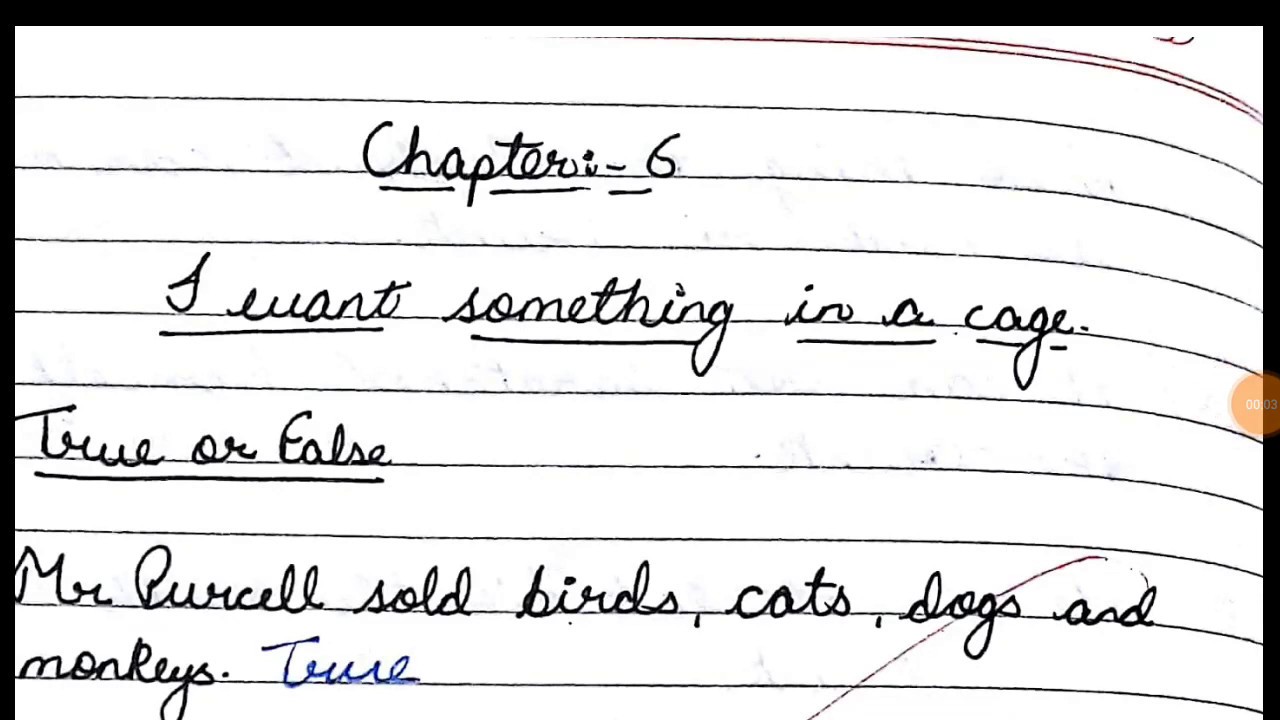 Chapter:- 6
I want something in a cage.
True or False
Mr Purcell sold birds, cats, dogs and
monkeys. True
00:03